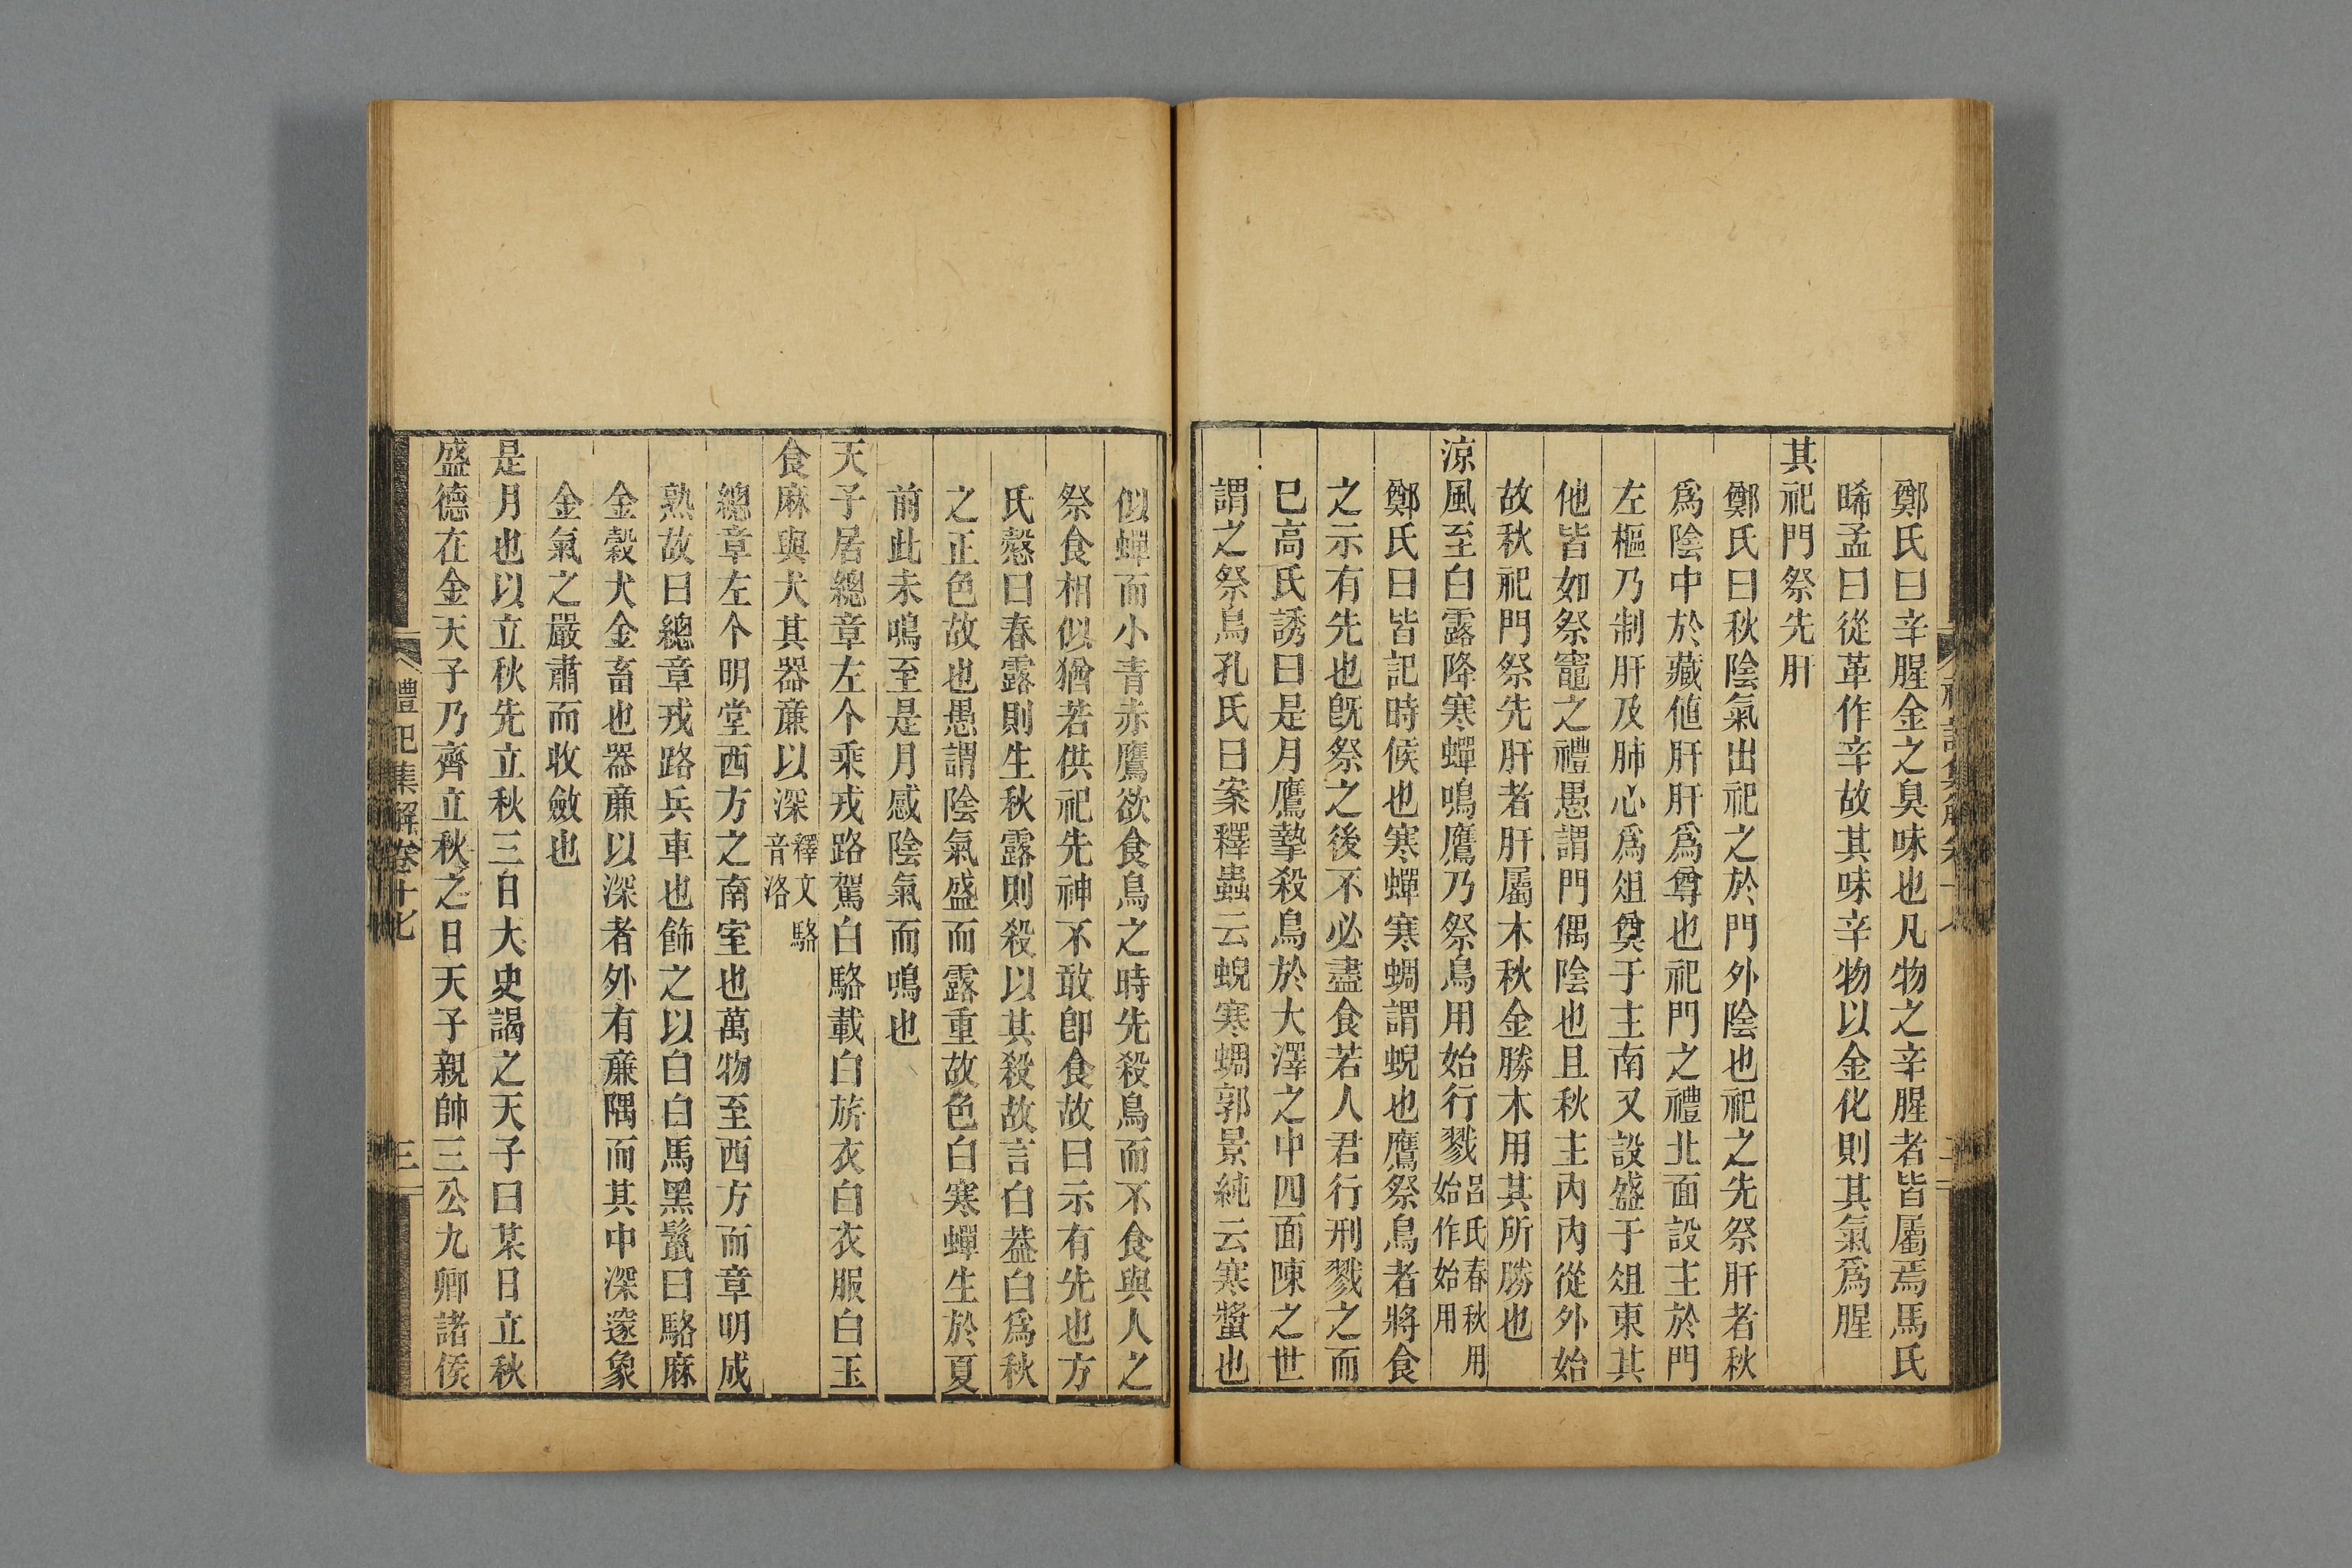 鄭氏曰辛腥金之臭味也凡物之辛腥者皆屬焉馬氏
晞孟曰從革作辛故其味辛物以金化則其氣爲腥
其祀門祭先肝
鄭氏曰秋陰氣出祀之於門外陰也祀之先祭肝者秋
爲陰中於藏値肝肝爲尊也祀門之禮北面設主於門
左樞乃制肝及肺心爲俎奠于主南又設盛于俎東其
他皆如祭竈之禮愚謂門偶陰也且秋主內內從外始
故秋祀門祭先肝者肝屬木秋金勝木用其所勝也
涼風至白露降寒蟬鳴鷹乃祭鳥用始行戮呂氏春秋用始作始用
鄭氏曰皆記時候也寒蟬寒蜩謂蜺也鷹祭鳥者將食
之示有先也旣祭之後不必盡食若人君行刑戮之而
已高氏誘曰是月鷹摯殺鳥於大澤之中四面陳之世
謂之祭鳥孔氏曰案釋蟲云蜺寒蜩郭景純云寒螿也
似蟬而小青赤鷹欲食鳥之時先殺鳥而不食與人之
祭食相似猶若供祀先神不敢卽食故曰示有先也方
氏慤曰春露則生秋露則殺以其殺故言白葢白爲秋
之正色故也愚謂陰氣盛而露重故色白寒蟬生於夏
前此未鳴至是月感陰氣而鳴也
天子居總章左个乘戎路駕白駱載白旂衣白衣服白玉
食麻與犬其器亷以深釋文駱音洛
總章左个明堂西方之南室也萬物至西方而章明成
熟故曰總章戎路兵車也飾之以白白馬黑鬣曰駱麻
金穀犬金畜也器亷以深者外有亷隅而其中深邃象
金氣之嚴肅而收斂也
是月也以立秋先立秋三日大史謁之天子曰某日立秋
盛德在金天子乃齊立秋之日天子親帥三公九卿諸侯
禮記集解卷十七
三